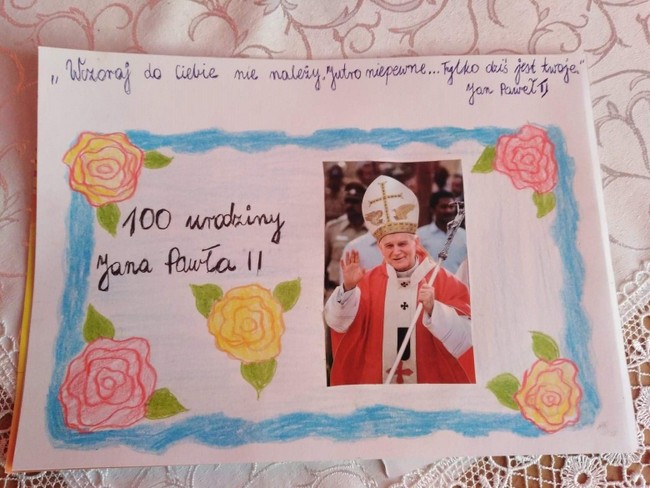 „Wczoraj do Ciebie nie należy. Jutro niepewne... Tylko dziś jest twoje."
Jan Paweł II
100 urodziny
Jana Pawła II